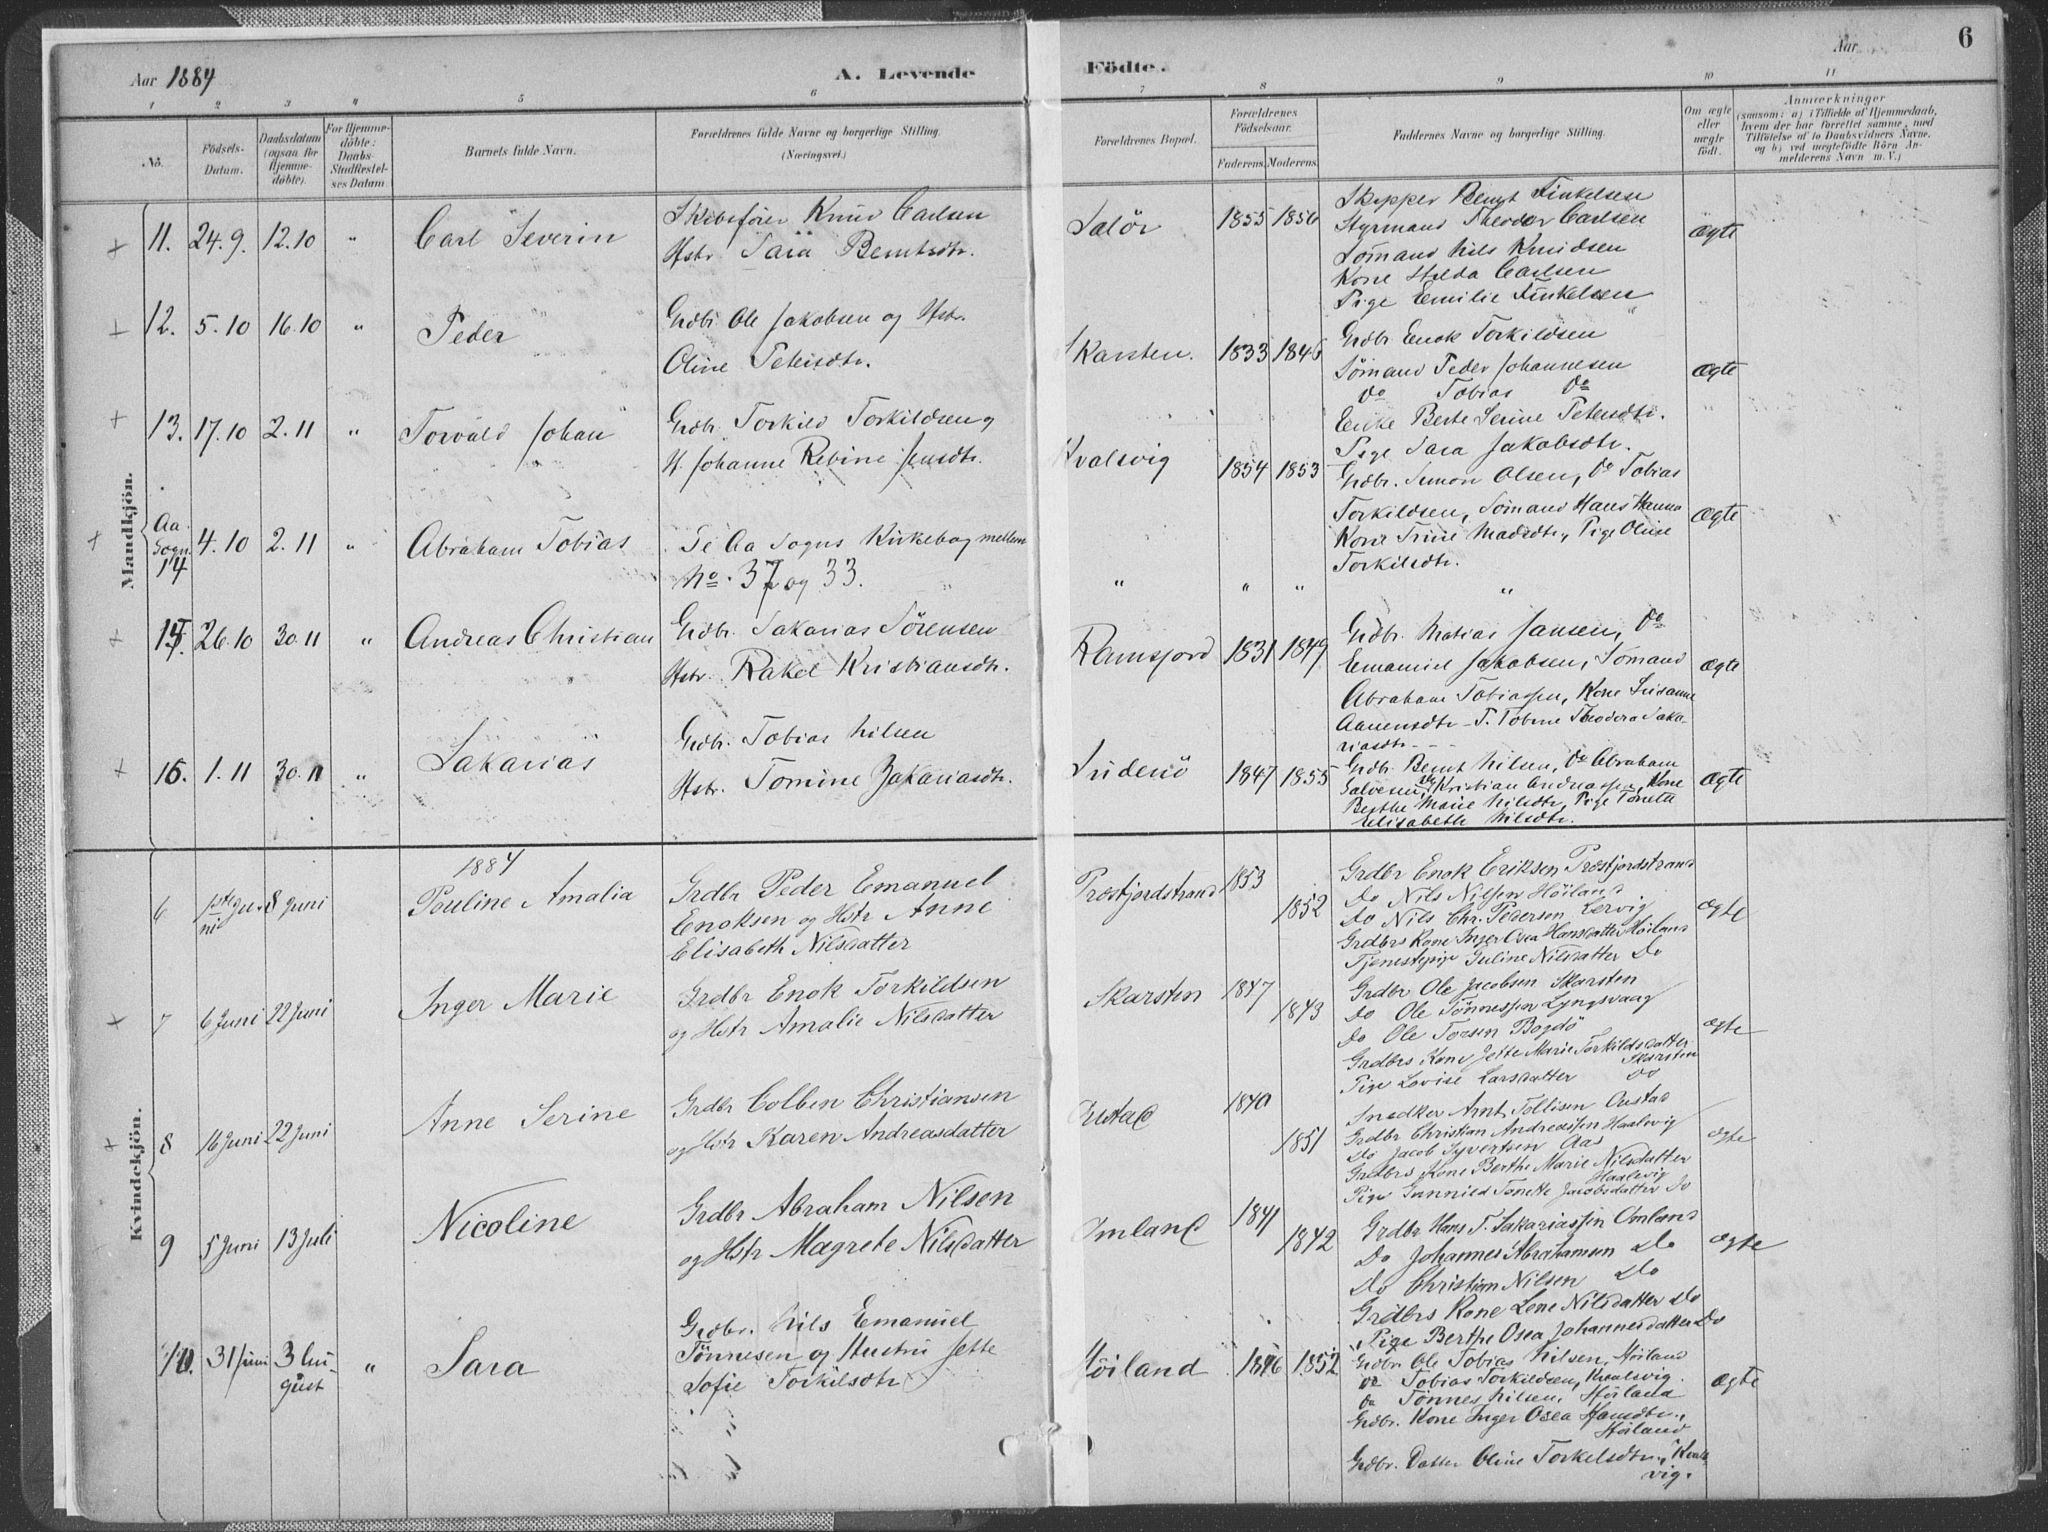 Aar 1884
A. Levende Födte.
Aar
6
1 2 3 4 5 6 7 8 9 10 11
No.
Födsels-Datum.
Daabsdatum (ogsaa for Hjemmedöbte).
For Hjemmedöbte: Daabs-Stadfæstelses Datum.
Barnets fulde Navn.
Forældrenes fulde Navne og borgerlige Stilling. (Næringsvei.)
Forældrenes Bopæl.
Forældrenes Födselsaar.
Faderens. Moderens.
Faddernes Navne og borgerlige Stilling.
Om ægte eller uægte födt.
Anmærkninger
(saasom: a) i Tilfælde af Hjemmedaab, hvem der har forrettet samme, med Tilföielse af to Daabsvidners Navne, og b) ved uægtefödte Börn Anmelderens Navn m. V.)
Mandkjön.
11. 24.9. 12.10 " Carl Severin
Skibsfører Knud Carlsen
Hstr. Sara Berntsdtr.
Salör 1855 1856
Skipper Bernt Finkelsen
Styrmand Theodor Carlsen
Sømand Nils Knudsen
Kone Hilda Carlsen
Pige Emilie Finkelsen
ægte
12. 5.10 16.10 " Peder
Grdbr. Ole Jakobsen og Hstr.
Oline Petersdtr.
Skarsten. 1833 1846
Grdbr. Enok Torkildsen
Sømand Peder Johannesen
do Tobias do
Enke Berte Serine Petersdtr.
Pige Sara Jakobsdtr.
ægte
13. 17.10 2.11 " Torvald Johan
Grdbr. Torkild Torkildsen og
H. Johanne Rebine Jensdtr.
Kvalsvig 1854 1853
Grdbr. Simon Olsen, do Tobias
Torkildsen, Sømand Hans Hanssen
Kone Trine Madsdtr., Pige Oline
Torkilsdtr.
ægte
Aa Sogn 14 4.10 2.11 " Abraham Tobias
Se Aa Sogns Kirkebog mellem
No. 37 og 33.
" " " "
15. 26.10 30.11 " Andreas Christian
Grdbr. Sakarias Sörensen
Hstr. Rakel Kristiansdtr.
Ramsfjord 1831 1849
Grdbr. Matias Jansen, do
Emanuel Jakobsen, Sømand
Abraham Tobiassen, Kone Susanne
Aanensdtr - P. Tobine Theodora Saka-
riasdtr.
ægte
16. 1.11 30.11 " Sakarias
Grdbr. Tobias Nilsen
Hstr. Tomine Zakariasdtr.
1847 1855
Grdbr. Bernt Nilsen, do Abraham
Salvesen, do Kristian Andreassen, Kone
Berthe Marie Nilsdtr, Pige Tonette
Elisabeth Nilsdtr.
ægte
Kvindekjön.
1884
6 1ste Juni 8 Juni Pouline Amalia
Grdbr Peder Emanuel
Enoksen og Hstr Anne
Elisabeth Nilsdatter
Præstfjordstrand 1853 1852
Grdbr Enok Eriksen Præstfjordstrand
Do Nils Nilsen Höiland
Do Nils Chr. Pedersen Lervig
Grdbrs Kone Inger Osea Hansdatter Höiland
Tjenestepige Juline Nilsdatter Do
ægte
7 6 Juni 22 Juni Inger Marie
Grdbr Enok Torkildsen
og Hstr Amalie Nilsdatter
Skarsten 1847 1843
Grdbr Ole Jacobsen Skarsten
Do Ole Tönnessen Lyngsvaag
Do Ole Torsen Bogdö
Grdbrs Kone Jette Marie Torkildsdatter
Skarsten
Pige Lovise Larsdatter Do
ægte
8 16 Juni 22 Juni Anne Serine
Grdbr Colben Christiansen
og Hstr Karen Andreasdatter
1840 1851
Snedker Arnt Tollisen
Grdbr Christian Andreassen Haalevig
Do Jacob Syvertsen Aas
Grdbrs Kone Berthe Marie Nilsdatter
Haalevig
Pige Gunnild Tonette Jacobsdatter Do
ægte
9 5 Juni 13 Juli Nicoline
Grdbr Abraham Nilsen
og Hstr Magrete Nilsdatter
Omland 1841 1842
Grdbr Hans T. Sakariassen Omland
Do Johannes Abrahamsen Do
Do Christian Nilsen Do
Grdbrs Kone Lene Nilsdatter Do
Pige Berthe Osea Johannesdatter Do
ægte
10. 31 Juni 3 August " Sara
Grdbr. Nils Emanuel
Tönnesen og Hustru Jette
Sofie Torkilsdtr
Höiland 1846 1852
Grdbr. Ole Tobias Nilsen, Höiland
do Tobias Torkildsen, Kvalsvig.
do Tönnes Nilsen, Höiland
Grdbr. Kone Inger Osea Hansdtr.,
Höiland
Grdbr. Datter Oline Torkelsdtr., Kvals-
vig.
ægte